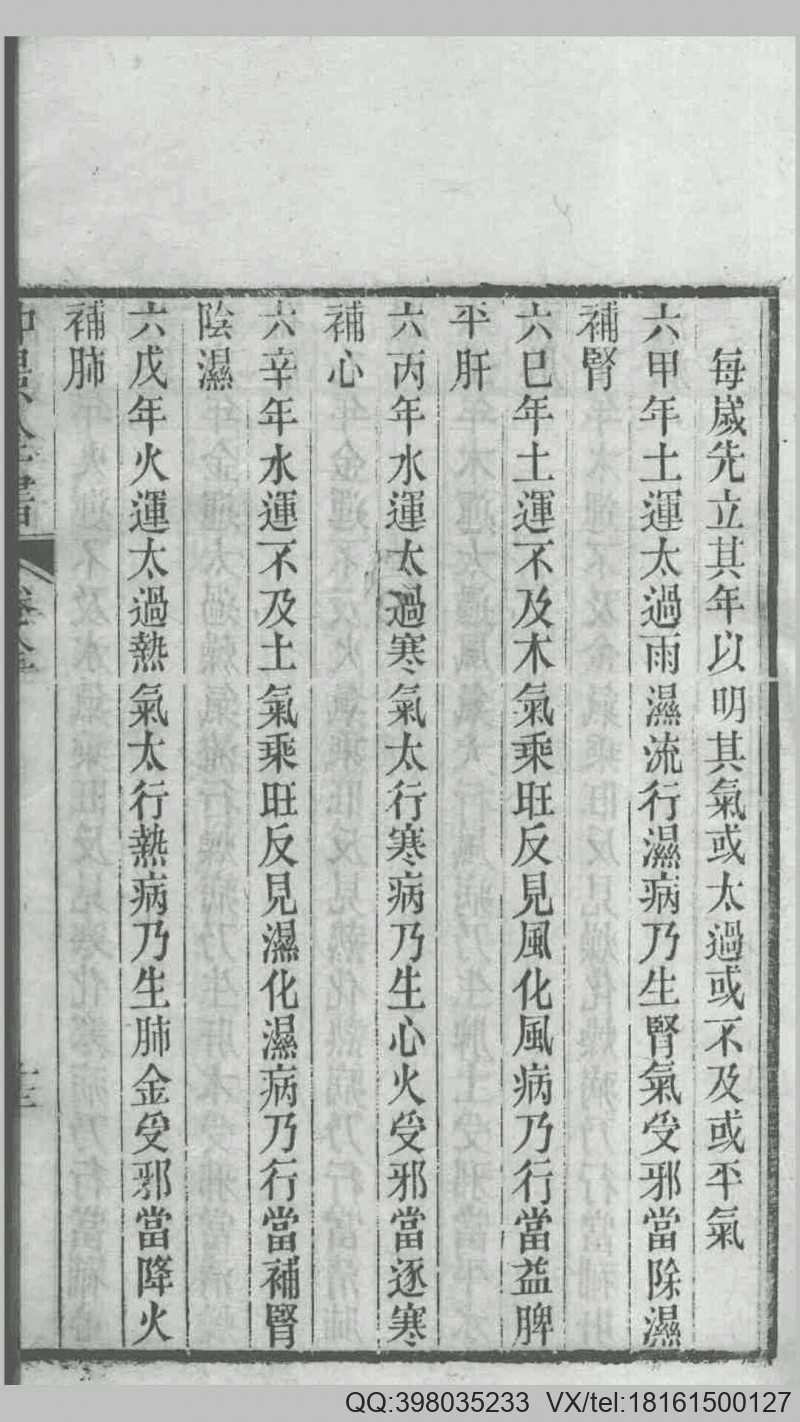 每歲先立其年以明其氣或太過或不及或平氣
六甲年土運太過雨濕流行濕病乃生腎氣受邪當除濕
補腎
六巳年土運不及木氣乘旺反見風化風病乃行當益脾
平肝
六丙年水運太過寒氣太行寒病乃生心火受邪當逐寒
補心
六辛年水運不及土氣乘旺反見濕化濕病乃行當補腎
陰濕
六戊年火運太過熱氣太行熱病乃生肺金受邪當降火
補肺
全書
QQ:398035233 VX/tel:18161500127